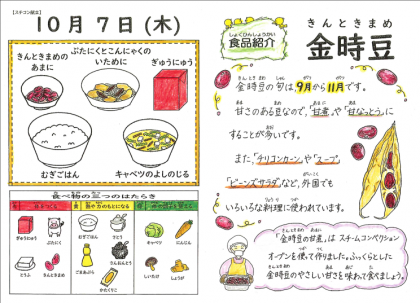 【スチコン献立】
10月7日(木)
きんときまめの
あまに
ぶたにくとこんにゃくの
いために
ぎゅうにゅう
むぎごはん
キャベツのよしのじる
食べ物の三つのはたらき
赤
黄
緑
ぎゅうにゅう
ぶたにく
とうふ
きんときまめ
むぎごはん
さとう
ごまあぶら
かたくりこ
キャベツ
にんじん
しいたけ
しょくひんしょうかい
食品紹介
きんときまめ
金時豆
金時豆の旬は、9月から11月です。
甘さのある豆なので、「甘煮」や「甘なっとう」に
することが多いです。
また、「チリコンカーン」や「スープ」
「ビーンズサラダ」など、外国でも
いろいろな料理に使われています。
「金時豆の甘煮」は スチームコンベクション
オーブンを使って作りました。ふっくらとした
金時豆のやさしい甘さを味わって食べましょう。